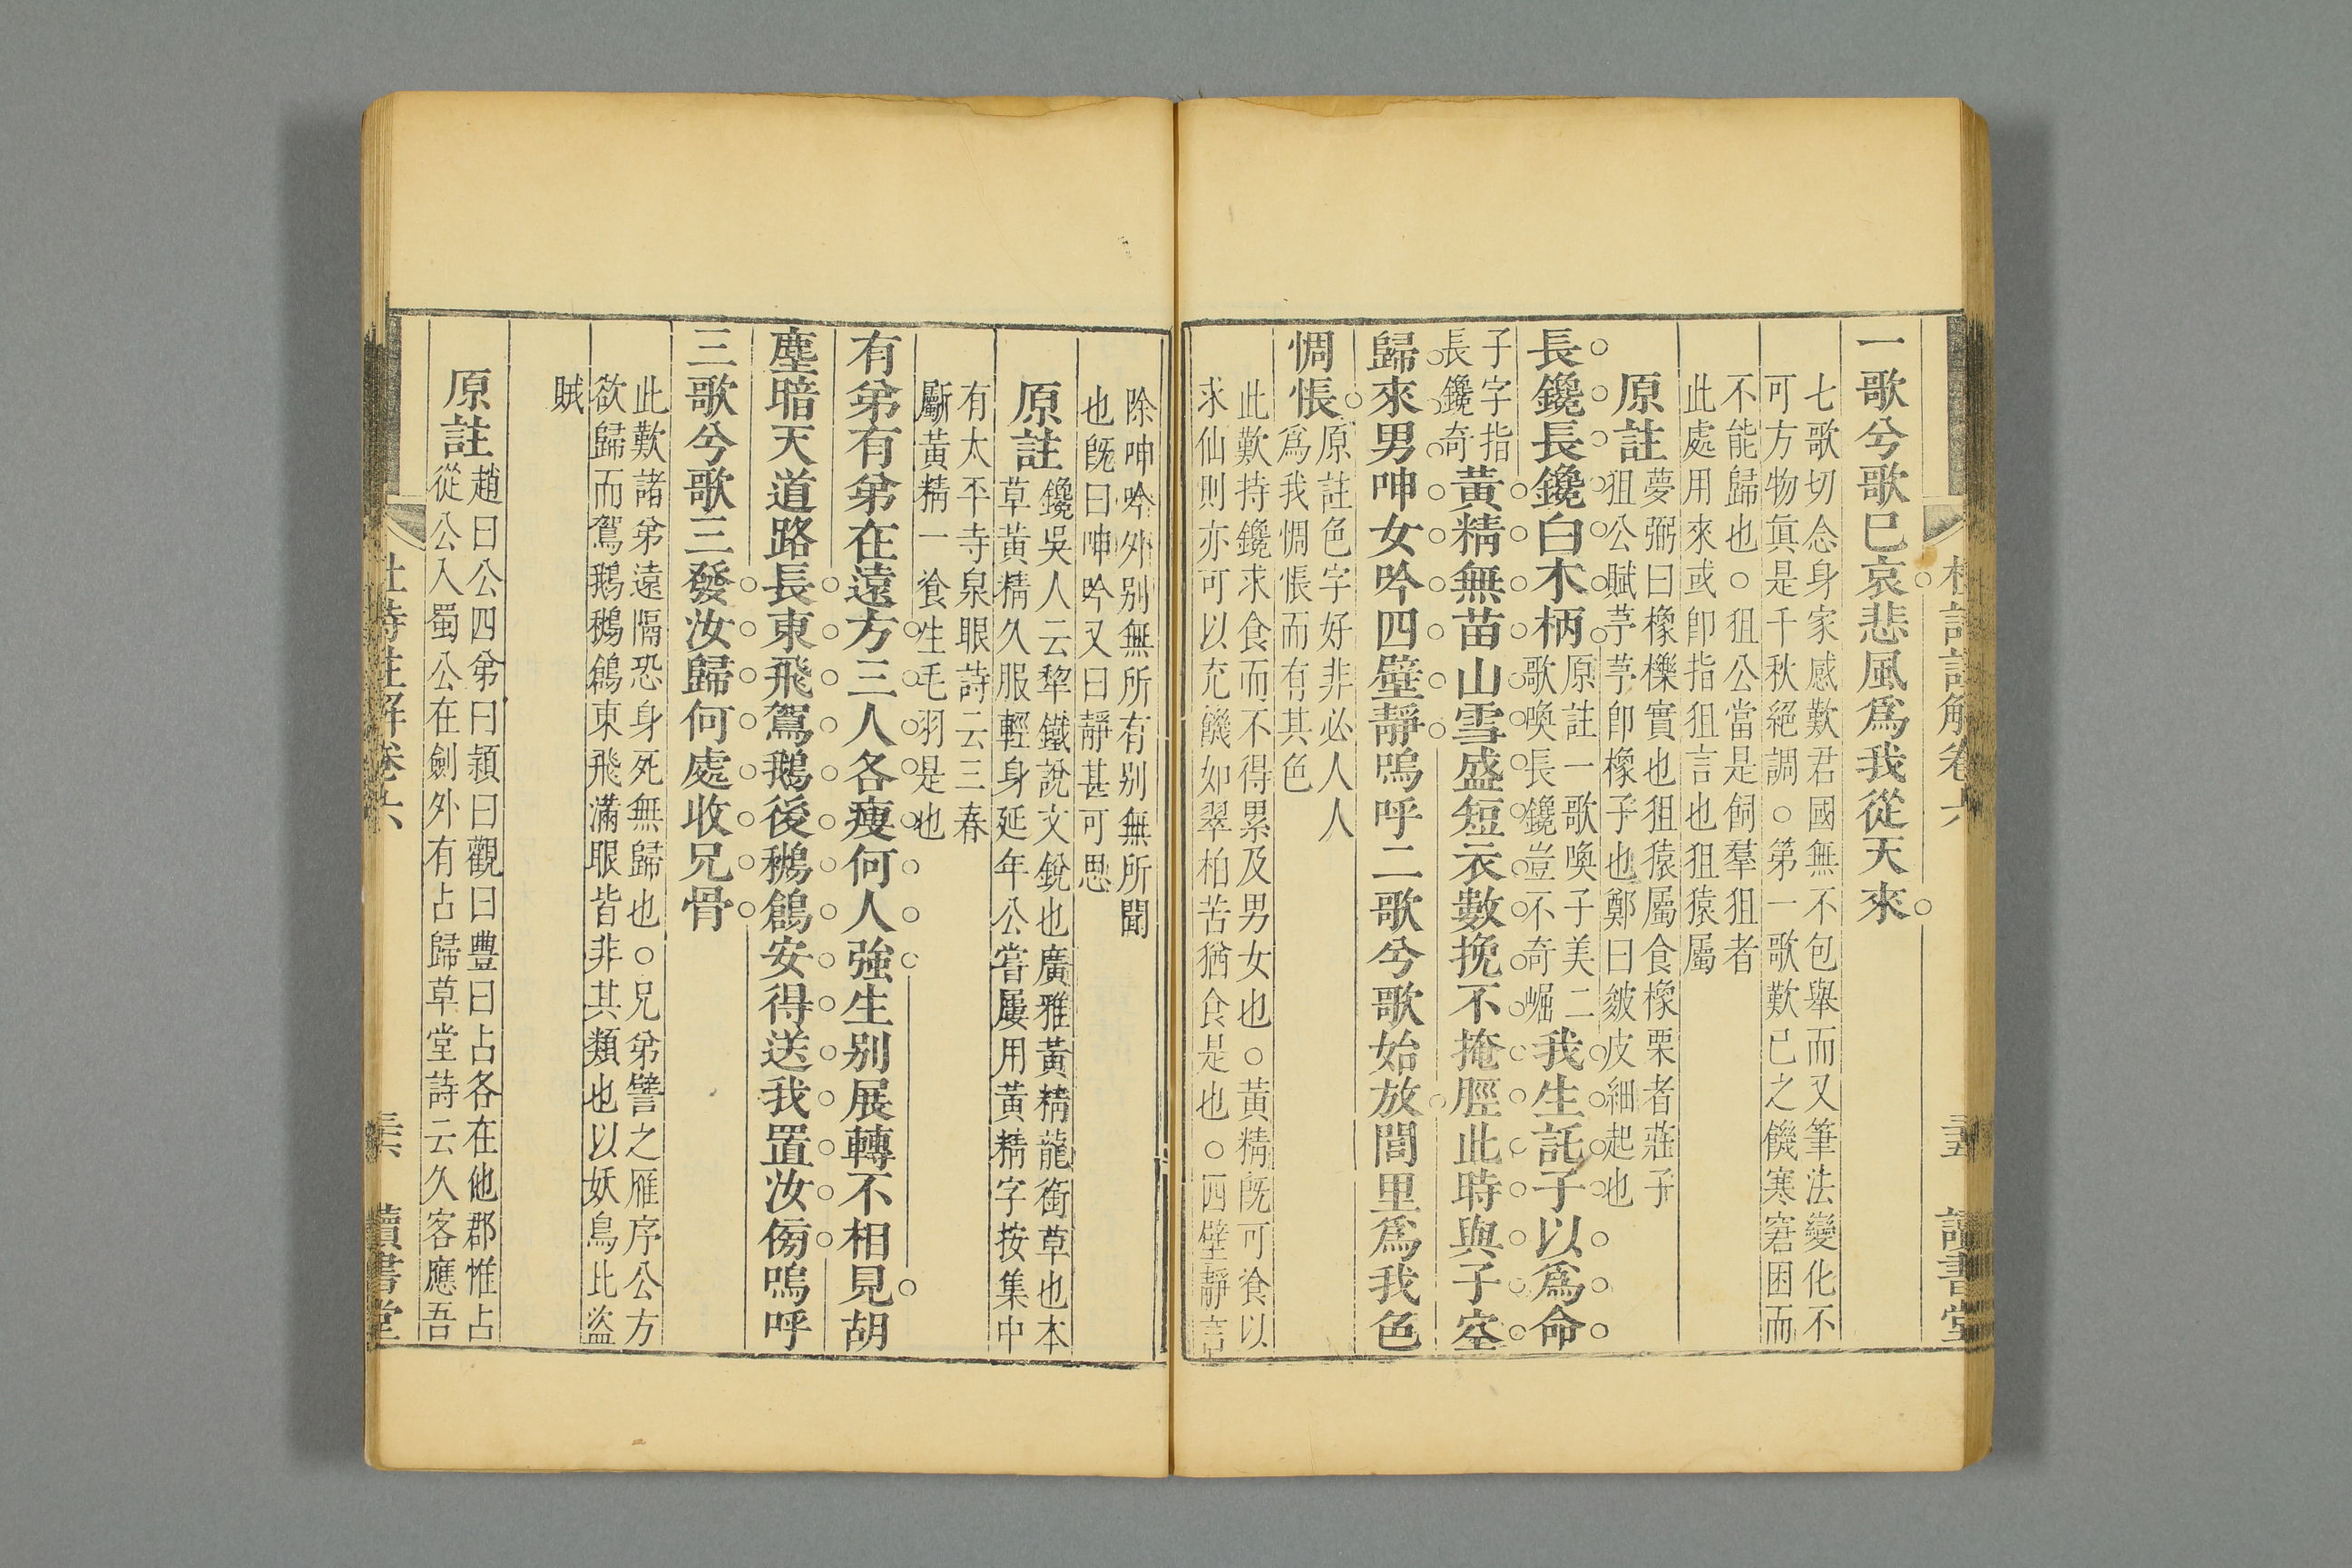 一歌兮歌已哀悲風爲我從天來
七歌切念身家感歎君國無不包舉而又筆法變化不
可方物眞是千秋絕調○第一歌歎已之饑寒窘困而
不能歸也○狙公當是飼羣狙者
此處用來或卽指狙言也狙猿屬
原註
夢弼曰橡櫟實也狙猿屬食橡栗者莊子
狙公賦芧芧卽橡子也鄭曰皴皮細起也
長鑱長鑱白木柄
原註一歌喚子美二
歌喚長鑱豈不奇崛
我生託子以爲命
子字指
長鑱奇
黃精無苗山雪盛短衣數挽不掩脛此時與子空
歸來男呻女吟四壁靜嗚呼二歌兮歌始放閭里爲我色
惆悵
原註色字好非必人人
爲我惆悵而有其色
此歎持鑱求食而不得累及男女也○黃精旣可飡以
求仙則亦可以充饑如翠柏苦猶食是也○四壁靜言
杜詩註解卷六
讀書堂
除呻吟外別無所有別無所聞
也旣曰呻吟又曰靜甚可思
原註
鑱吳人云犂鐵說文銳也廣雅黃精龍銜草也本
草黃精久服輕身延年公嘗屢用黃精字按集中
有太平寺泉眼詩云三春
斸黃精一飡生毛羽是也
有弟有弟在遠方三人各瘦何人強生別展轉不相見胡
塵暗天道路長東飛駕鵝後鶖鶬安得送我置汝傍嗚呼
三歌兮歌三發汝歸何處收兄骨
此歎諸弟遠隔恐身死無歸也○兄弟譬之雁序公方
欲歸而駕鵝鶖鶬東飛滿眼皆非其類也以妖鳥比盜
賊
原註
趙曰公四弟曰穎曰觀曰豐曰占各在他郡惟占
從公入蜀公在劍外有占歸草堂詩云久客應吾
杜詩註解卷六
讀書堂